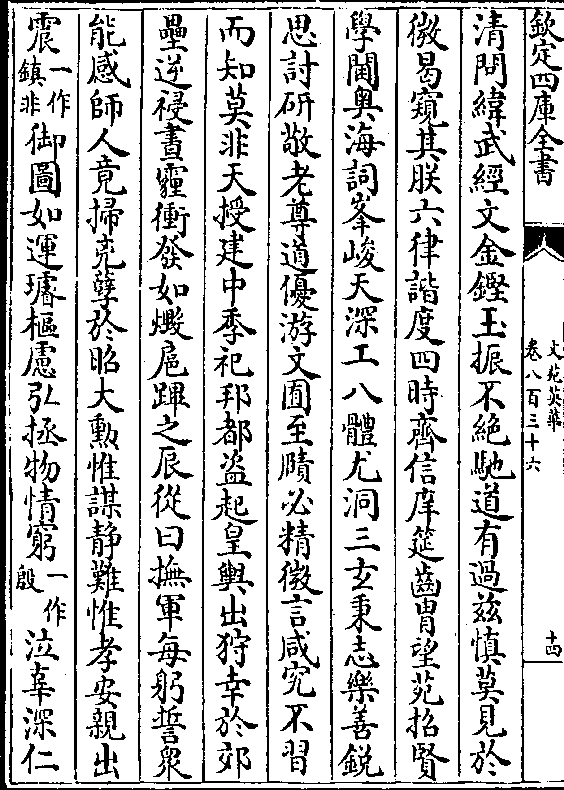 欽定四庫全書
文苑英華
卷八百三十六
十四
清問緯武經文金鏗玉振不絶馳道有過兹慎莫見於
微曷窺其朕六律諧度四時齊信庠筵齒胄望苑招賢
學閫奥海詞峯峻天深工八體尤洞三玄秉志樂善鋭
思討研敬老尊道優游文囿至賾必精微言咸究不習
而知莫非天授建中季祀邦都盗起皇輿出狩幸於郊
壘逆祲晝霾衝發如燬扈蹕之辰從曰撫軍每躬誓衆
能感師人竟掃兇孽於昭大勲惟謀静難惟孝安親出
震一作鎮非御圖如運璿樞慮弘拯物情窮一作殷泣辜深仁